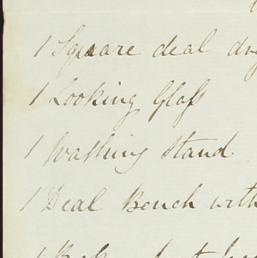 1 Square deal
1 Looking Glass
1 Washing Stand
1 Deal Bench with
1